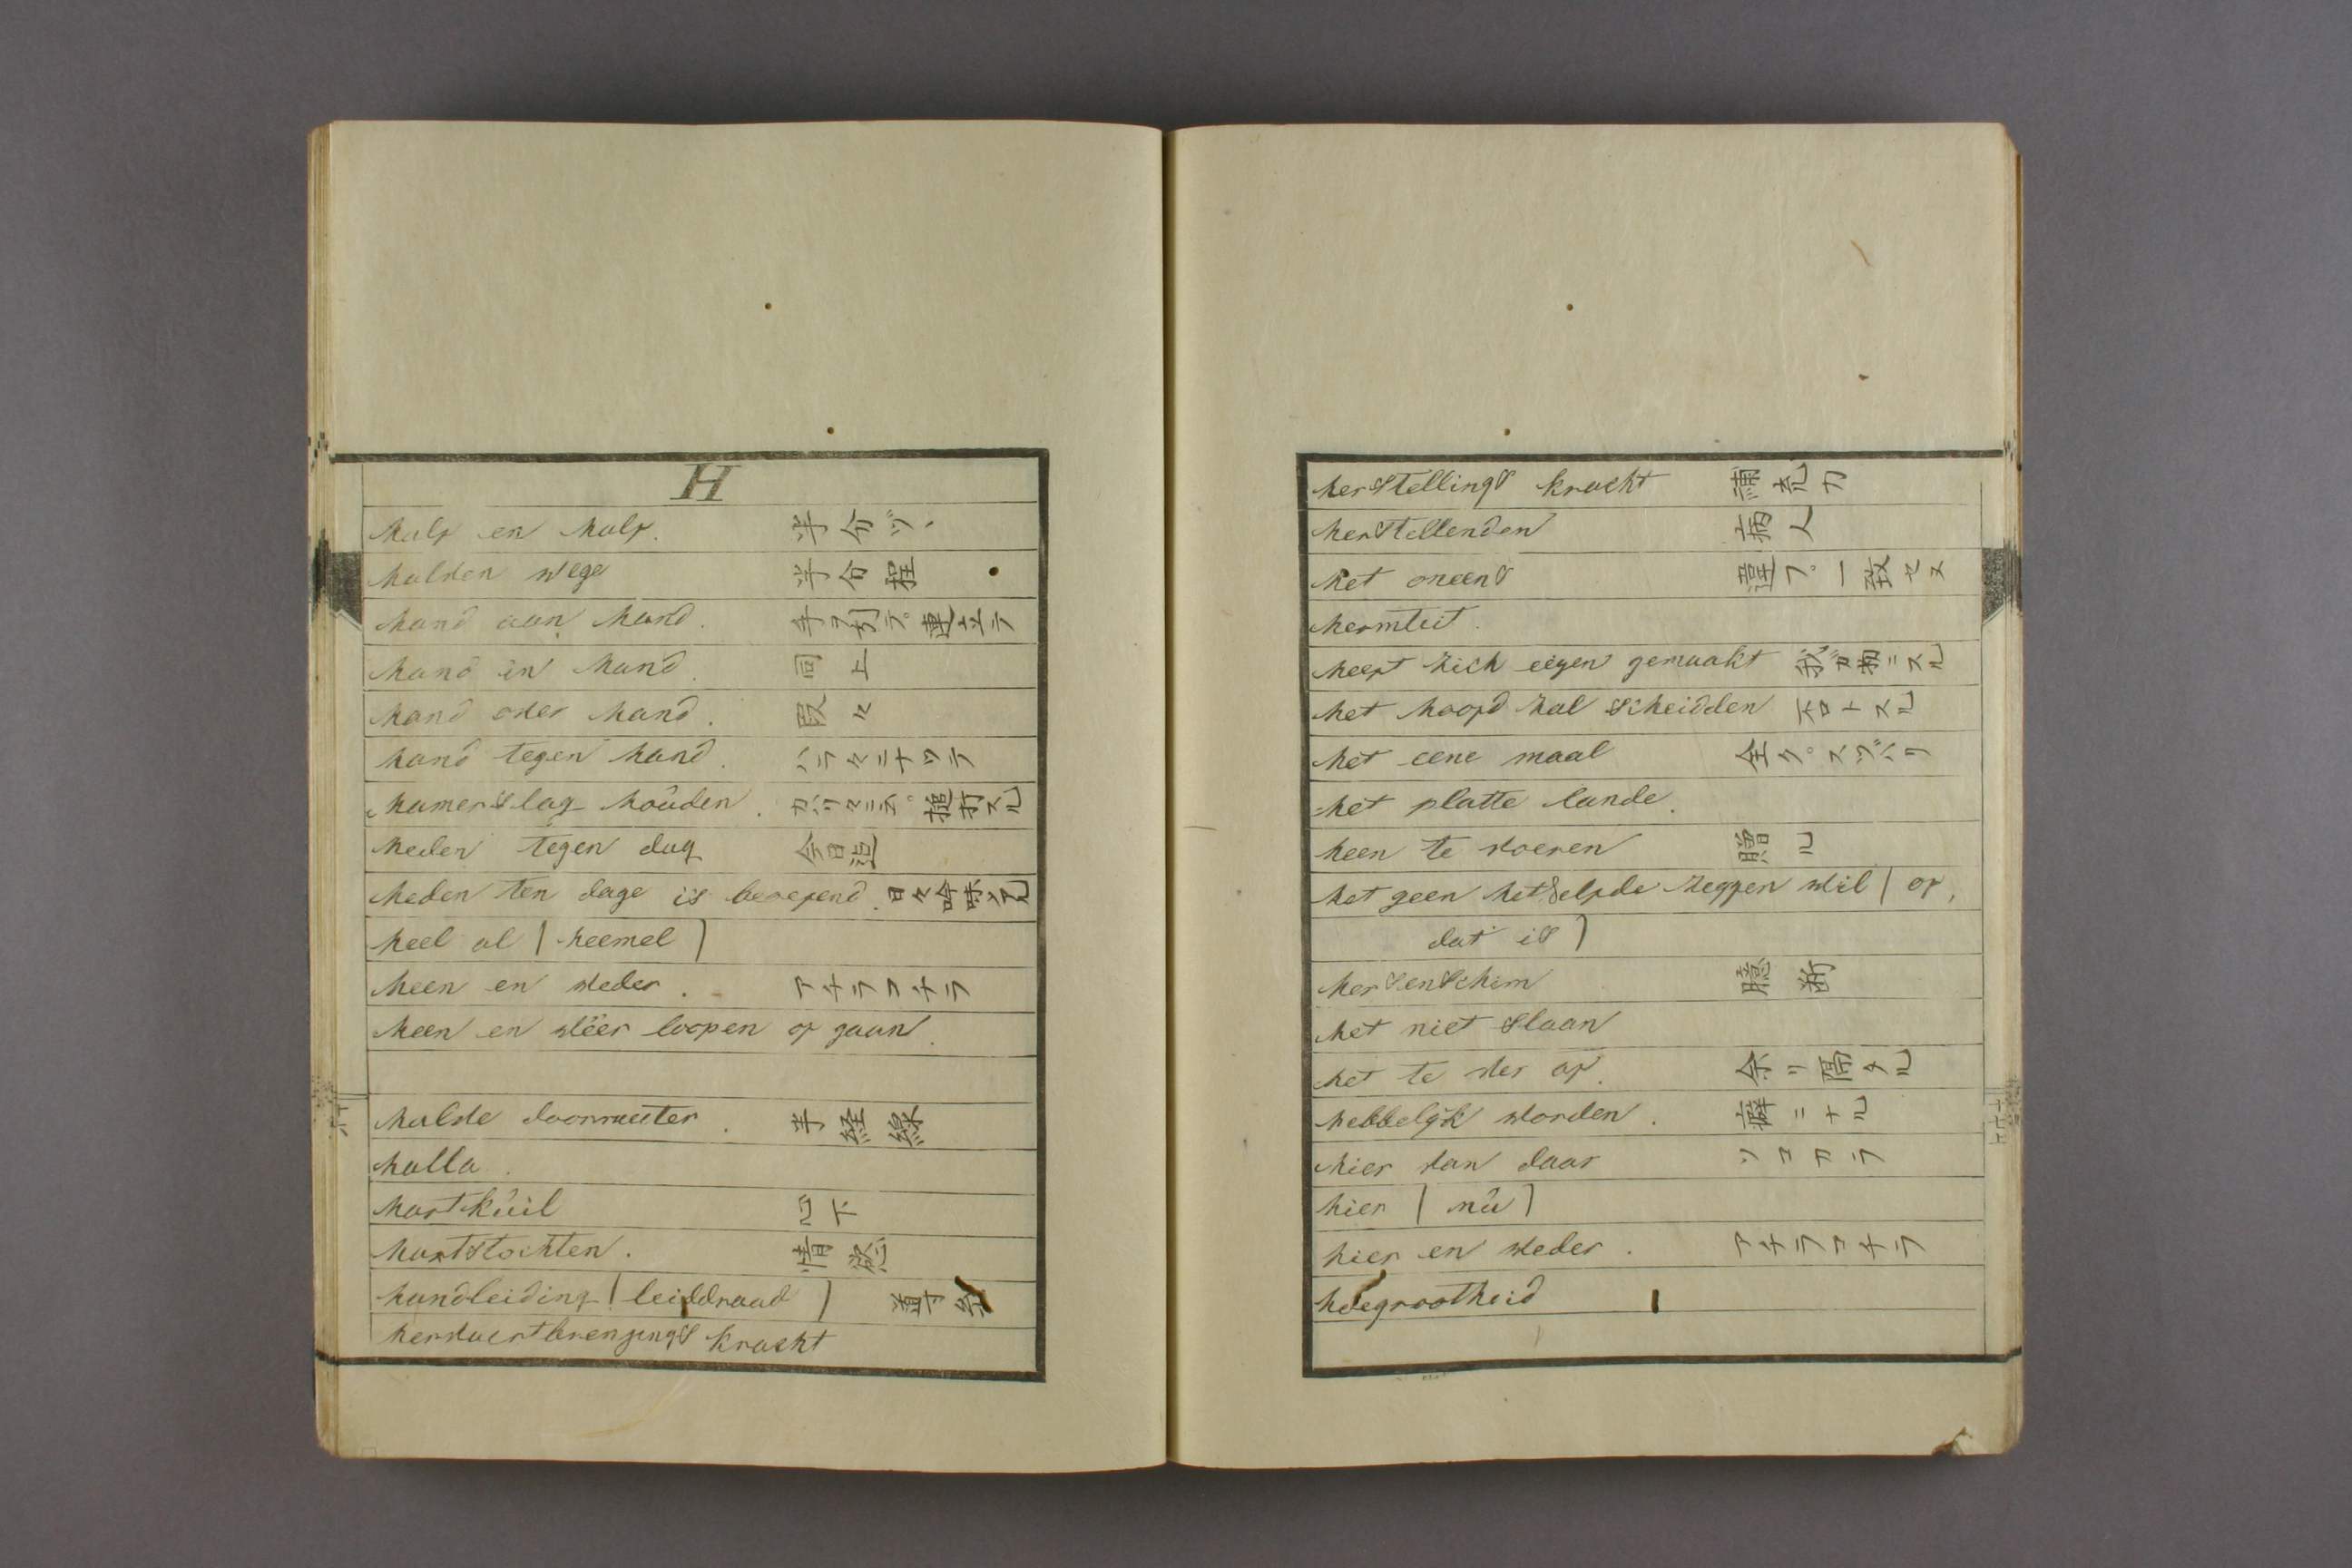 H
half en half. 半分ヅヽ
halven wege 半分程
hand aan hand. 手ヲ引テ。連立テ
hand in hand. 同上
hand over hand. 段々
hand tegen hand. ハラ々ニナツテ
hamerslag houden.
heden tegen dag 今日迄
heden ten dage is beoefend. 日々
heel al (heemel)
heen en weder. アチラコチラ
heen en wëer loopen of gaan.
halve doormeeter. 半経線
halla.
hartkúil 心下
hartstochten. 情慾
handleiding (leiddraad) 導
hervoertbrengings kracht
herstellings kracht 力
herstellenden 病人
het oneens 違フ。一致セヌ
hermteit.
heeft zich eigen gemaakt 我ガ物ニスル
het hoofd zal scheidden
het eene maal 全ク。スツパリ
het platte lande.
heen te voeren 贈ル
het geen het selfde zeggen wil (of,
dat is)
hersenschim 臆断
het niet slaan
het te ver af. 余リ隔タル
hebbelijk worden. 癖ニナル
hier van daar ソコカラ
hier (nú)
hier en weder. アチラコチラ
hoegrootheid